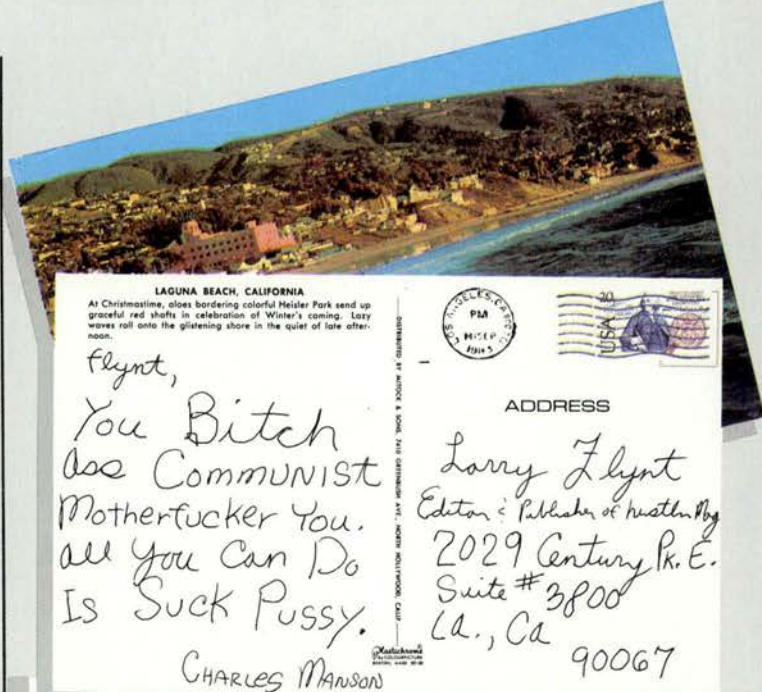 LAGUNA BEACH, CALIFORNIA
At Christmastime, aloes bordering colorful Heisler Park send up
graceful red shafts in celebration of Winter's coming. Lazy
waves roll onto the glistening shore in the quiet of late after-
noon.
Flynt,
You Bitch
Ass COMMUNIST
Motherfucker You.
all You Can Do
Is Suck Pussy.
CHARLES MANSON
DISTRIBUTED BY MITOCK & SONS, 7410 GREENBUSH AVE., NORTH HOLLYWOOD, CALIF.
Plastichrome
LOS ANGELES, CA
PM
SEP
1983
USA
20
ADDRESS
Larry Flynt
Editor & Publisher of hustler Mag
2029 Century Pk. E.
Suite # 3800
LA., Ca
90067